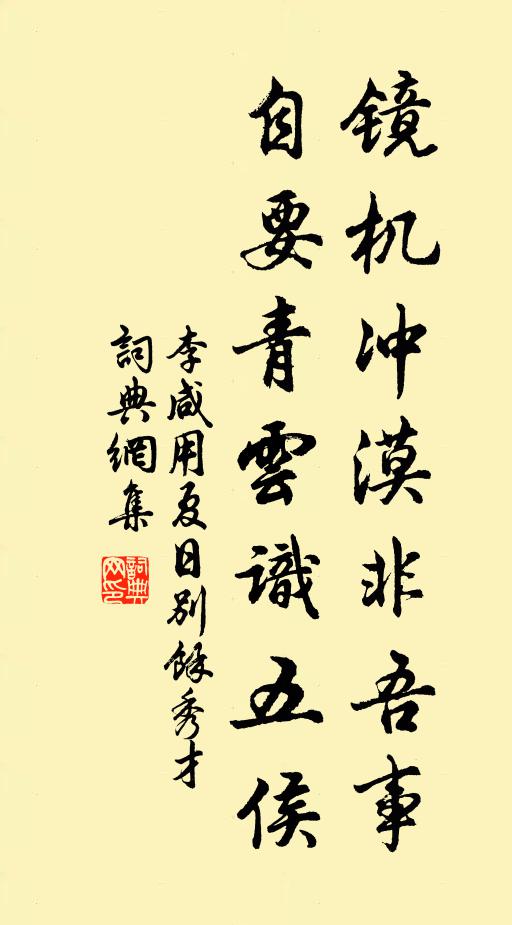 镜机冲漠非吾事
自要青雲識五侯
李咸用夏日別餘秀才
詞典網集
詞典
网印